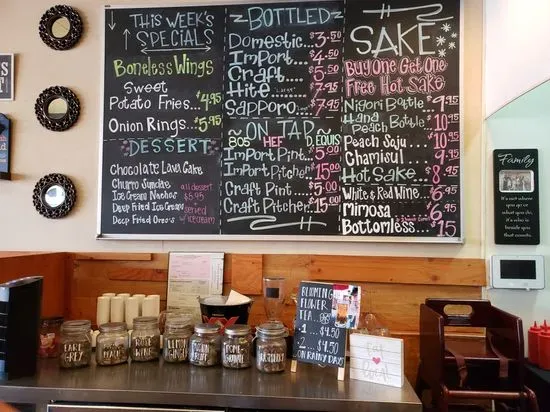 THIS WEEK'S
SPECIALS
BONELESS WINGS
SWEET
POTATO FRIES... $4.95
ONION RINGS... $5.95
DESSERT
CHOCOLATE LAVA CAKE
CHURRO SUNDAES
ICE CREAM NACHOS
DEEP FRIED ICE CREAM
DEEP FRIED OREO'S
all dessert
$5.95
served
w/ icecream
BOTTLED
DOMESTIC... $3.50
IMPORT... $4.50
CRAFT... $5.50
HITE... $7.95
SAPPORO... $7.95
ON TAP
805 HEF D. EQUIS
IMPORT PINT... $5.00
IMPORT PITCHER $15.00
CRAFT PINT... $5.00
CRAFT PITCHER... $15.00
SAKE
BUY ONE GET ONE
FREE HOT SAKE
NIGORI BOTTLE... 9.95
HANA
PEACH BOTTLE. 10.95
PEACH SOJU... 10.95
CHAMISUL... 9.95
HOT SAKE... 8.95
WHITE & RED WINE... 6.95
MIMOSA 6.95
BOTTOMLESS... 15
Family
IT'S NOT WHERE
YOU GO OR
WHAT YOU DO,
IT'S WHO IS
BESIDE YOU
THAT COUNTS.
BLOOMING
FLOWER
TEA
1... $4.50
2... $4.50
ON RAINY DAYS
EAT
LOCAL
EARL
GREY
LEMON
GINGER